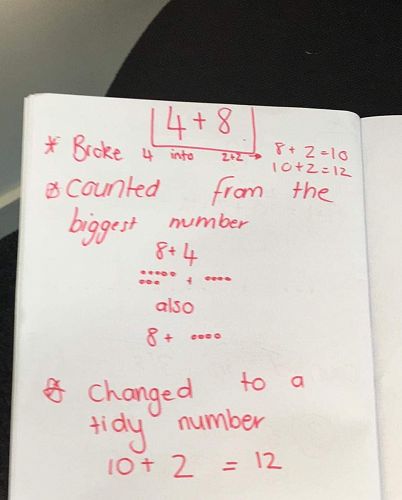 4 + 8
* Broke 4 into 2+2 → 8 + 2 = 10
10 + 2 = 12
* Counted from the
biggest number
8 + 4
•••••••• + ••••
also
8 + ••••
* Changed to a
tidy number
10 + 2 = 12